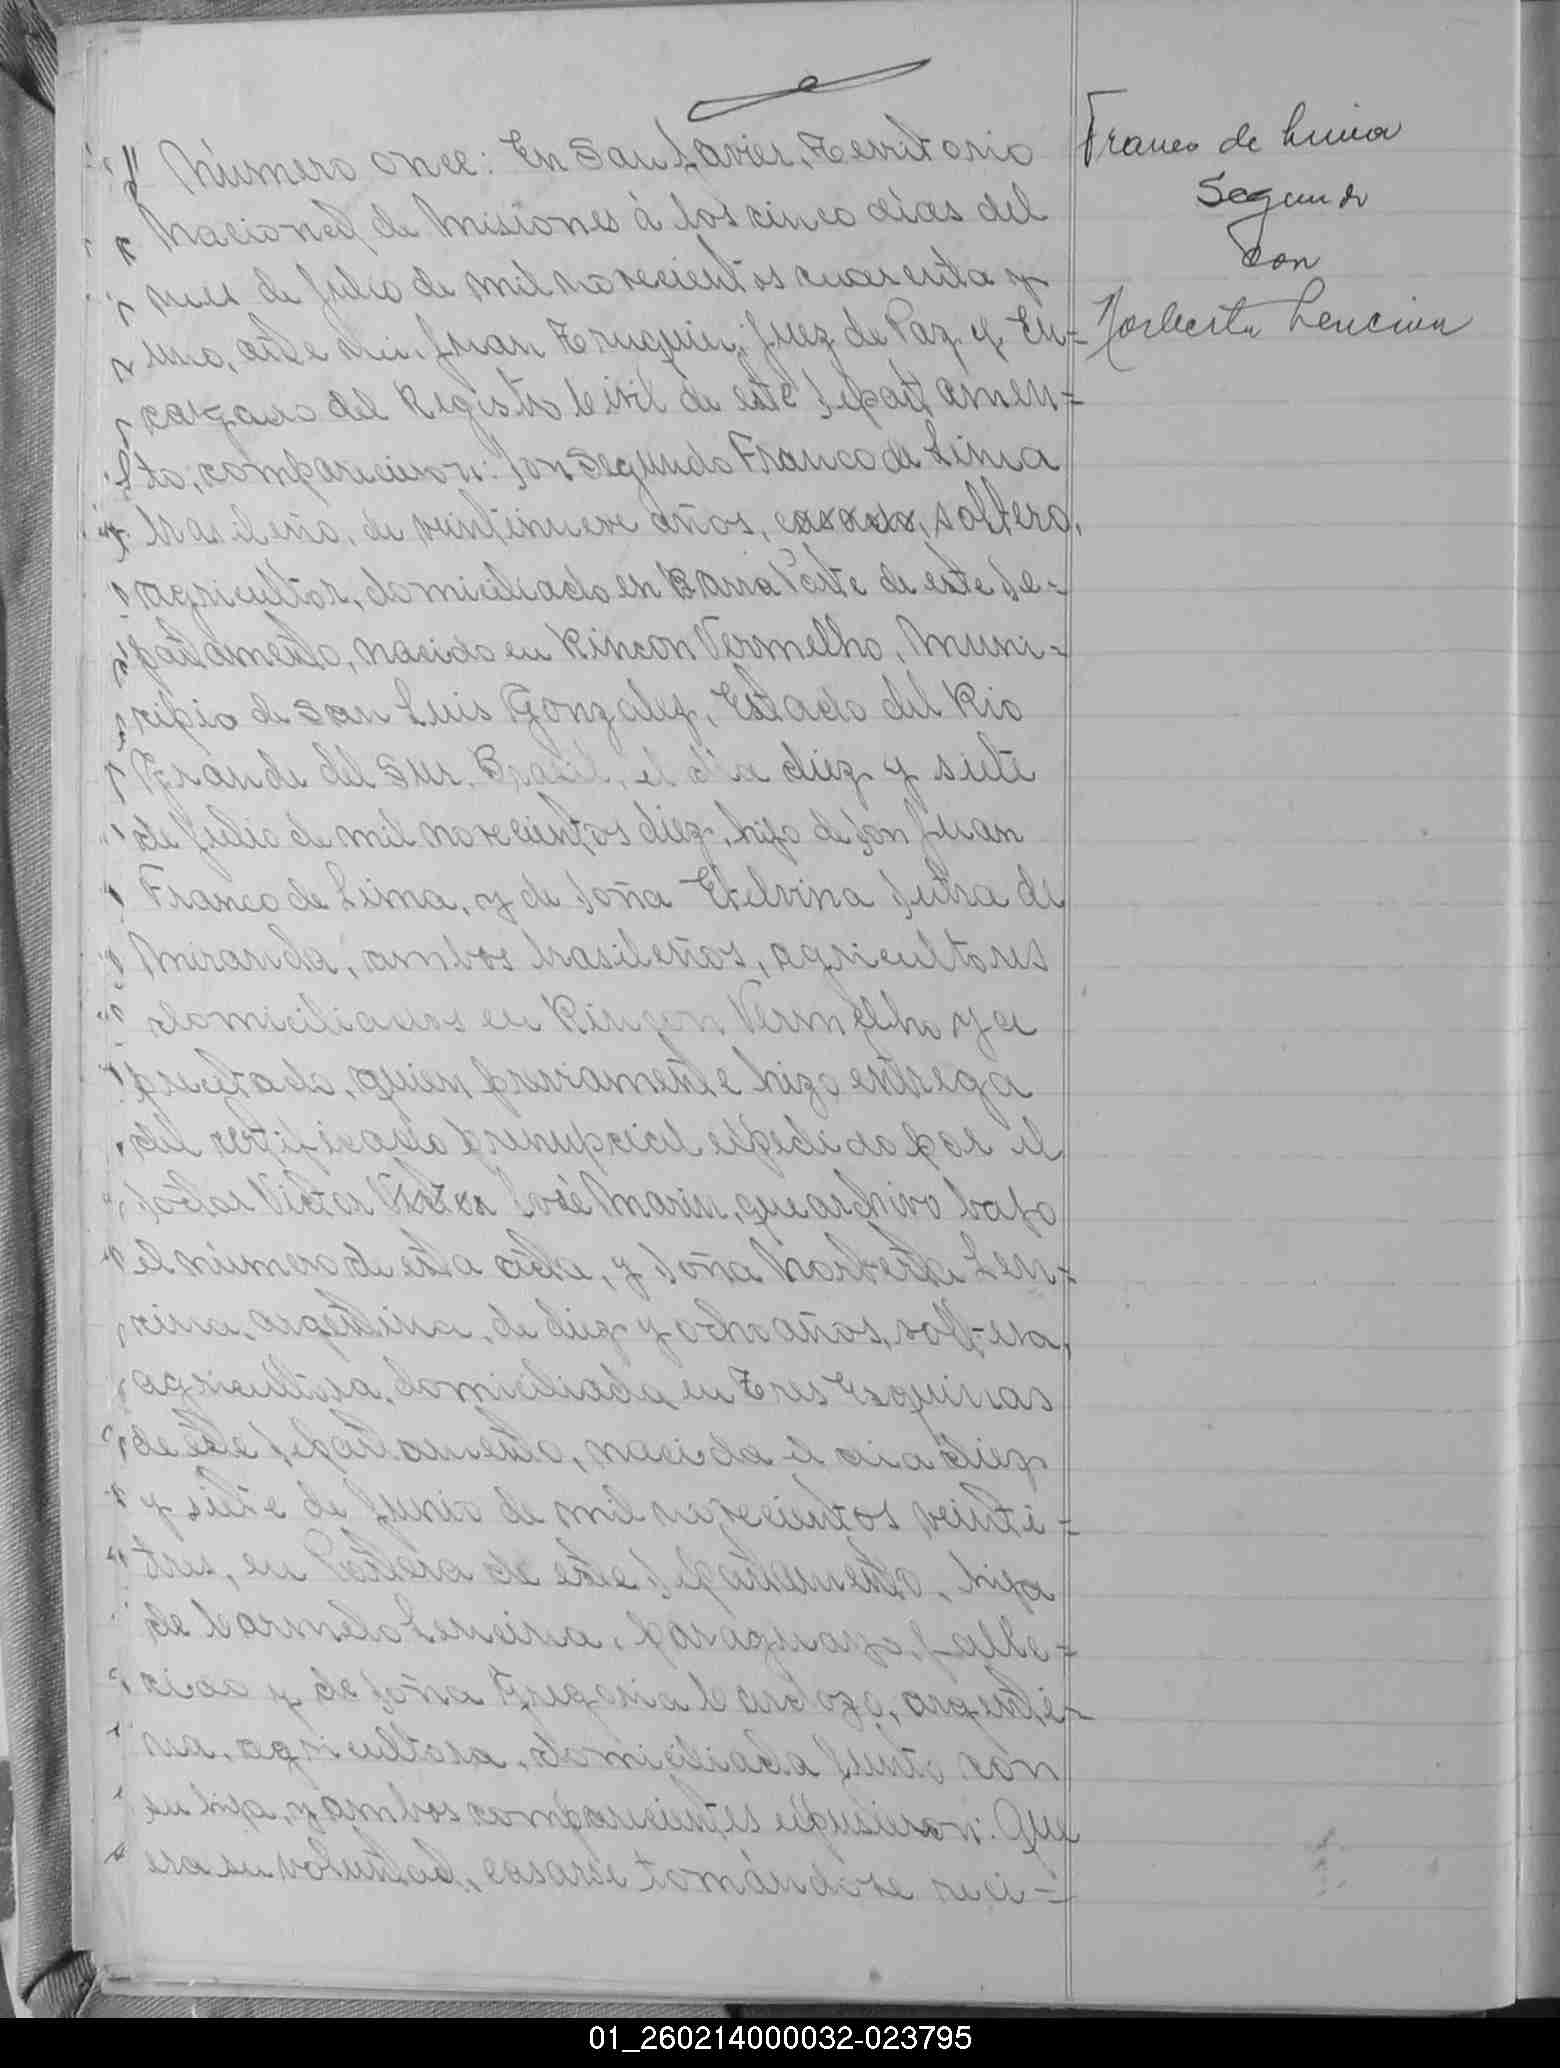 Número once: En San Javier, Territorio
Nacional de Misiones á los cinco dias del
mes de Julio de mil novecientos cuarenta y
uno, ante mi, Juan Truquin, Juez de Paz y En-
cargado del Registro Civil de este Departamen-
to, comparecieron: Don Segundo Franco de Lima
brasileño, de veintinueve años, soltero,
agricultor, domiciliado en Barra Veste de este De-
partamento, nacido en Rincon Vermelho, Muni-
cipio de San Luis Gonzalez, Estado del Rio
Grande del Sur, Brasil, el dia diez y siete
de Julio de mil novecientos diez, hijo de Don Juan
Franco de Lima, y de Doña Etelvina Dutra de
Miranda, ambos brasileños, agricultores
domiciliados en Rincon Vermelho ya
precitado, quien previamente hizo entrega
del certificado prenupcial expedido por el
Doctor Victor José Marin, que archivo bajo
el número de esta acta, y Doña Norberta Len-
cina, argentina, de diez y ocho años, soltera,
agricultora, domiciliada en Tres Esquinas
de este Departamento, nacida el dia diez
y siete de Junio de mil novecientos veinti-
tres, en Potrero de este Departamento, hija
de Carmelo Lencina, paraguayo, falle-
cido y de Doña Gregoria Cardozo, argenti-
na, agricultora, domiciliada junto con
su hija, y ambos comparecientes expusieron: Que
era su voluntad, casarse tomándose reci-
Franco de Lima
Segundo
con
Norberta Lencina
01_260214000032-023795